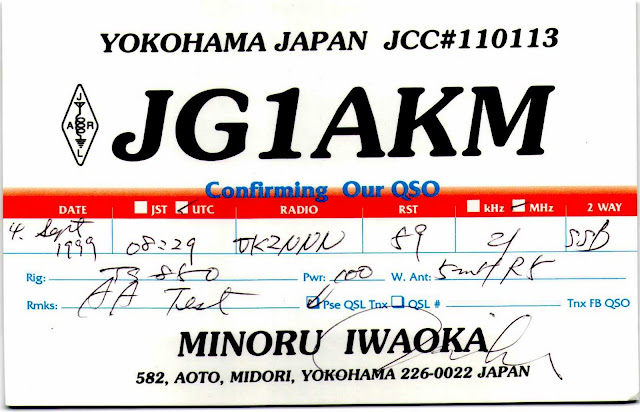 YOKOHAMA JAPAN JCC#110113
J A R L
JG1AKM
Confirming Our QSO
DATE JST UTC RADIO RST kHz MHz 2 WAY
4. Sept 1999 08:29 VK2NNN 59 21 SSB
Rig: TS 850 Pwr: 100 W. Ant:
Rmks: AA Test Pse QSL Tnx QSL # Tnx FB QSO
MINORU IWAOKA
582, AOTO, MIDORI, YOKOHAMA 226-0022 JAPAN